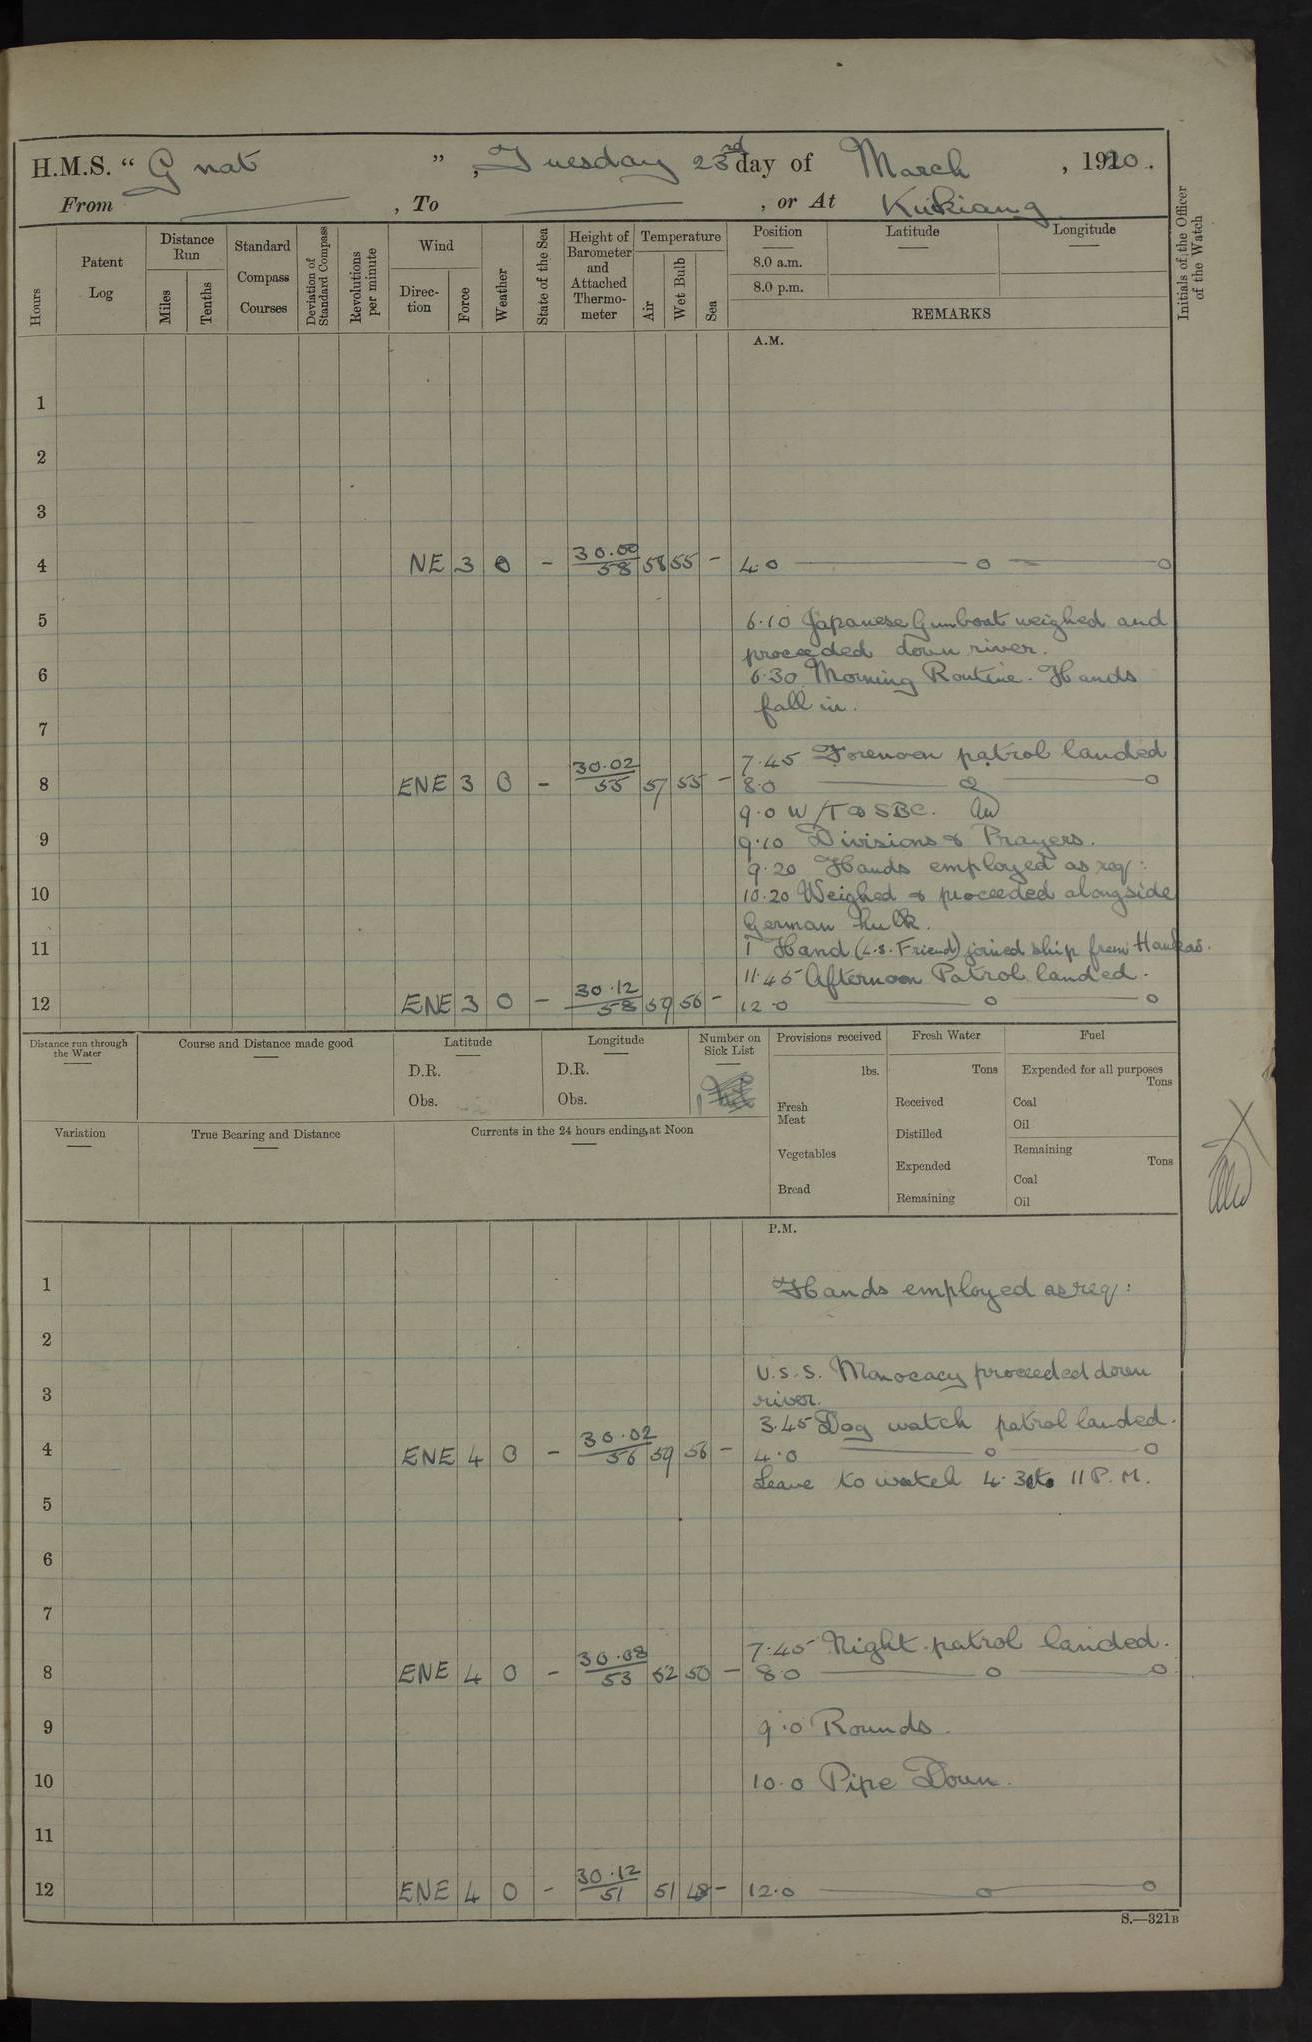 H.M.S. “ Gnat ”, Tuesday 23rd day of March, 1920.
From , To , or At Kiukiang
Initials of the Officer of the Watch
Hours
Patent Log
Distance Run
Miles
Tenths
Standard Compass Courses
Deviation of Standard Compass
Revolutions per minute
Wind
Direction
Force
Weather
State of the Sea
Height of Barometer and Attached Thermometer
Temperature
Air
Wet Bulb
Sea
Position
8.0 a.m.
8.0 p.m.
Latitude
Longitude
REMARKS
A.M.
1
2
3
4 NE 3 O - 30.00 58 58 55 - 4.0
5 6.10 Japanese Gunboat weighed and
proceeded down river.
6 6.30 Morning Routine. Hands
fall in.
7
7.45 Forenoon patrol landed
8 ENE 3 O - 30.02 55 57 55 - 8.0
9.0 W/T to SBC.
9 9.10 Divisions & Prayers.
9.20 Hands employed as req:
10 10.20 Weighed & proceeded alongside
German hulk.
11 1 Hand (L.S. Friend) joined ship from Hankao.
11.45 Afternoon Patrol landed.
12 ENE 3 O - 30.12 58 59 56 - 12.0
Distance run through the Water
Course and Distance made good
Latitude
D.R.
Obs.
Longitude
D.R.
Obs.
Number on Sick List
Provisions received
lbs.
Fresh Meat
Vegetables
Bread
Fresh Water
Tons
Received
Distilled
Expended
Remaining
Fuel
Expended for all purposes
Tons
Coal
Oil
Remaining
Tons
Coal
Oil
Variation
True Bearing and Distance
Currents in the 24 hours ending at Noon
P.M.
1 Hands employed as req:
2
U.S.S. Monocacy proceeded down
3 river.
3.45 Dog watch patrol landed.
4 ENE 4 O - 30.02 56 59 56 - 4.0
Leave to watch 4.30 to 11 P.M.
5
6
7
7.45 Night patrol landed.
8 ENE 4 O - 30.08 53 52 50 - 8.0
9 9.0 Rounds.
10 10.0 Pipe Down.
11
12 ENE 4 O - 30.12 51 51 48 - 12.0
S.—321B